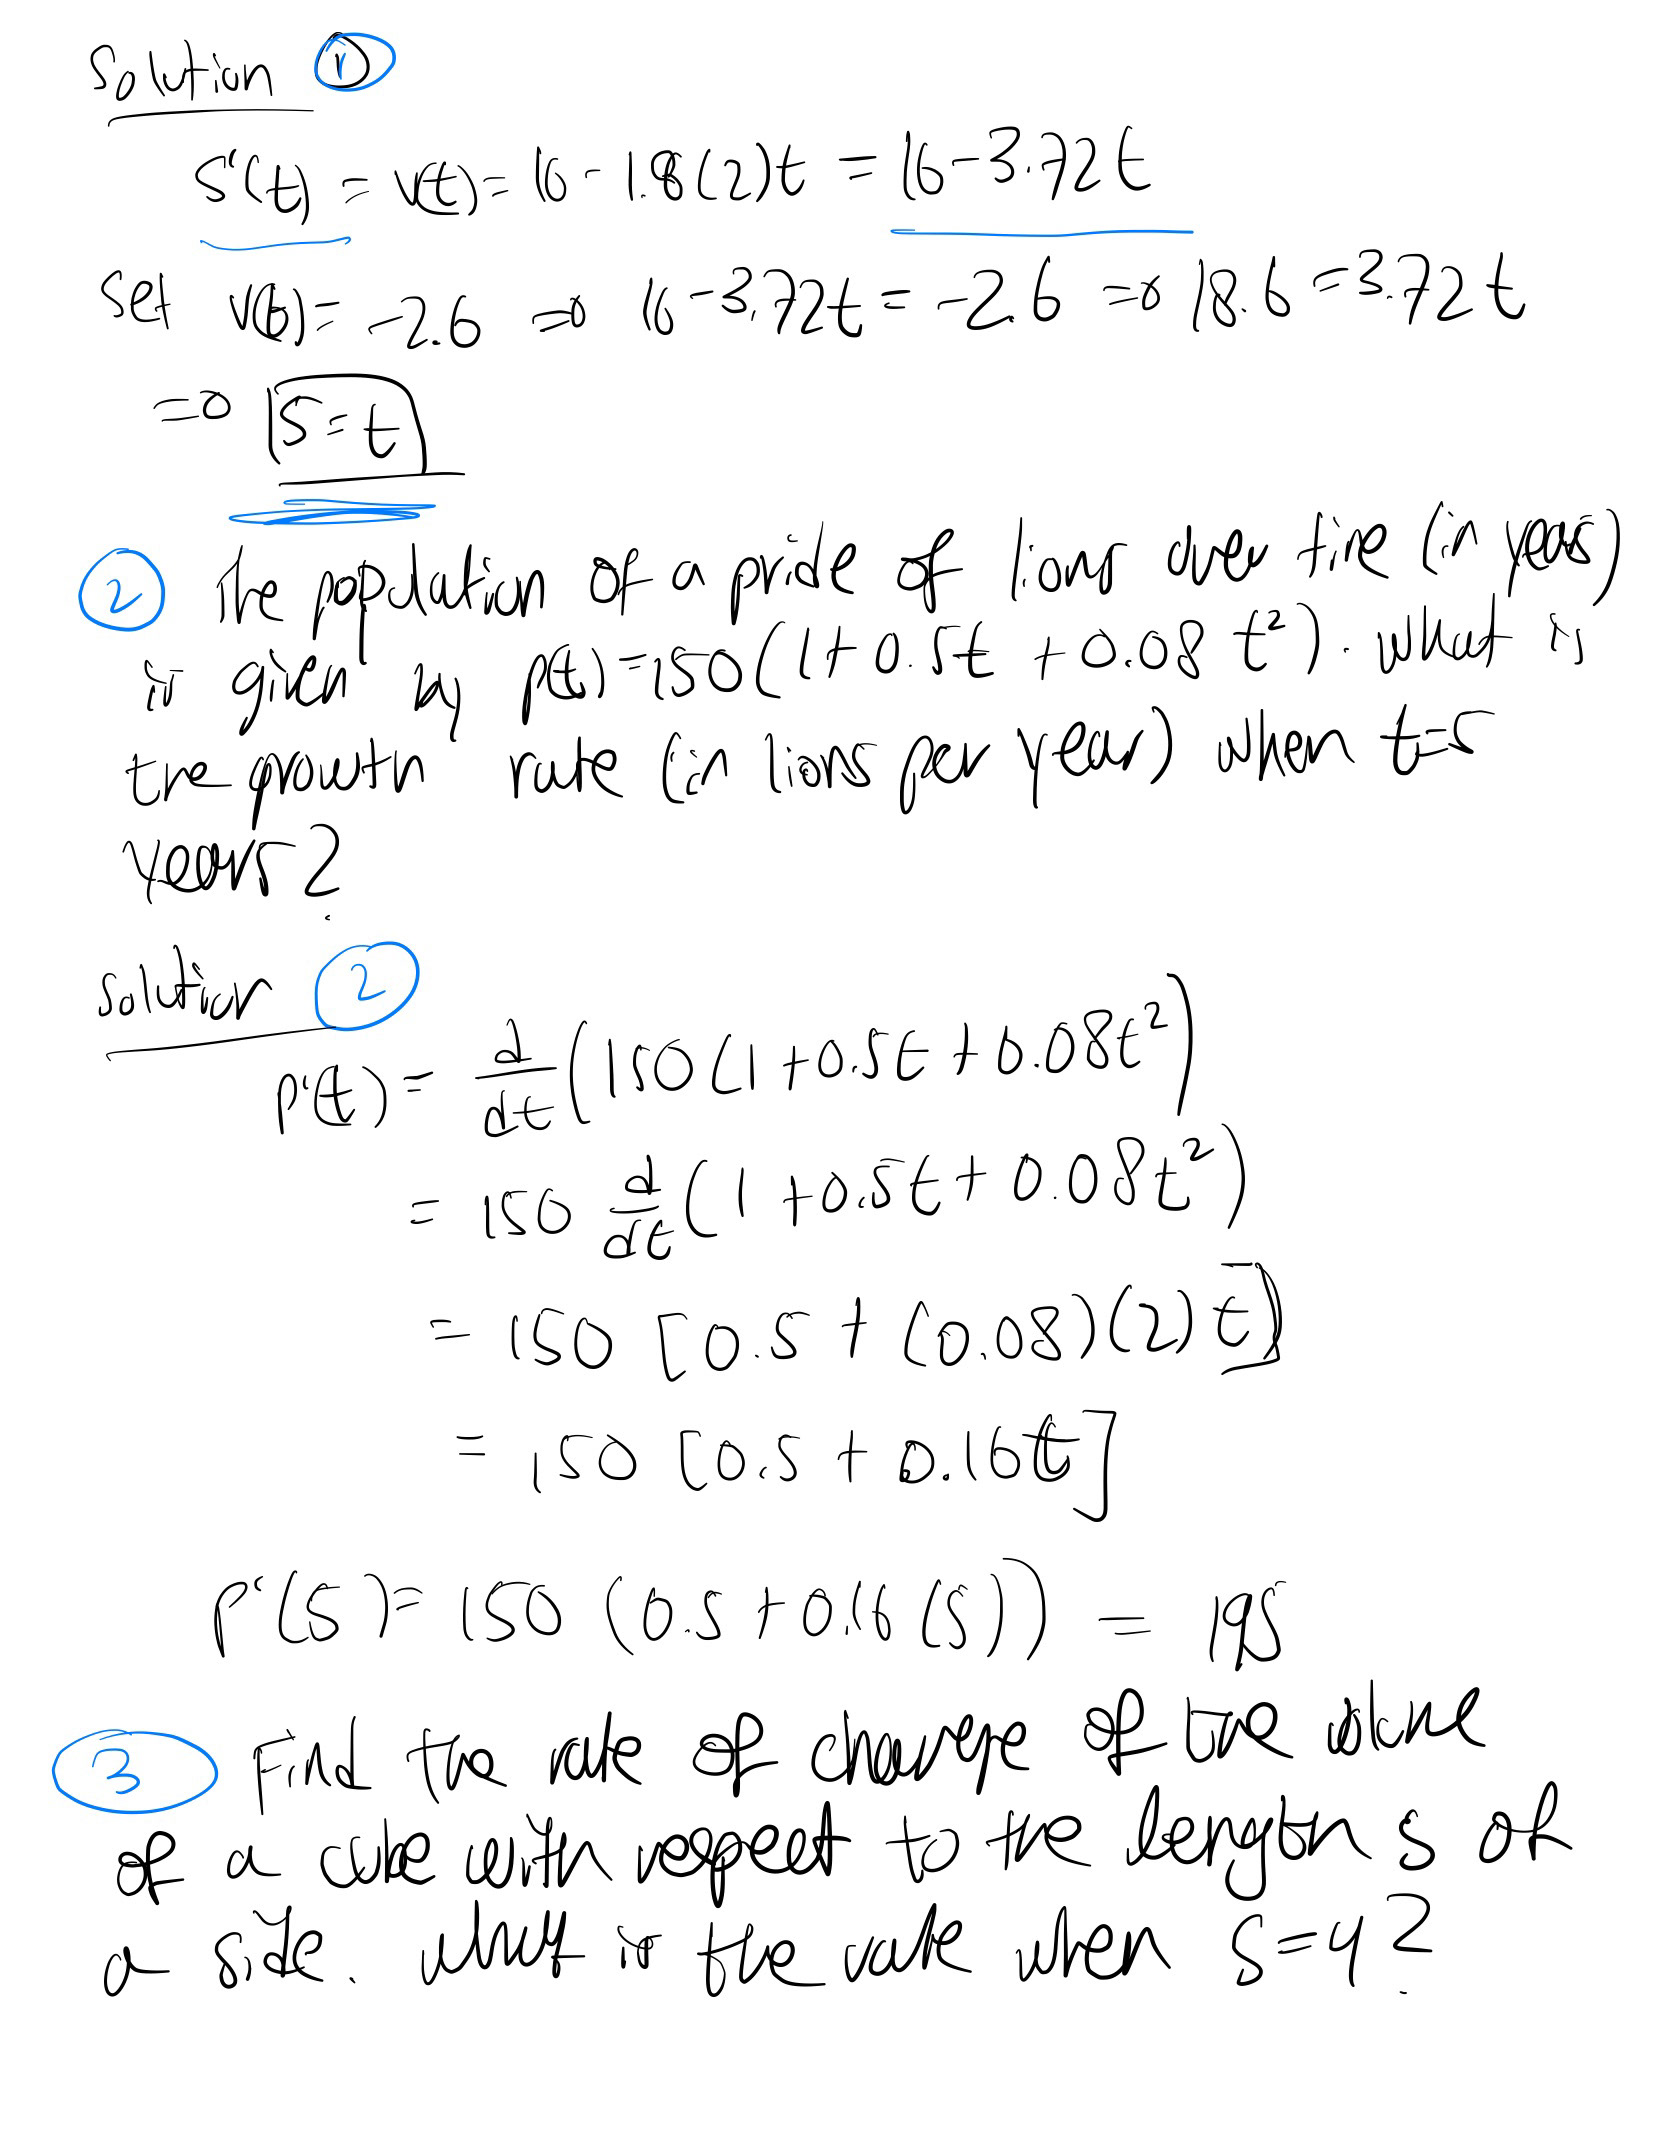 Solution ①
s'(t) = v(t) = 16 - 1.8(2)t = 16 - 3.72t
Set v(t) = -2.6 => 16 - 3.72t = -2.6 => 18.6 = 3.72t
=> 5 = t
② The population of a pride of lions over time (in years)
is given by p(t) = 150(1 + 0.5t + 0.08t²). What is
the growth rate (in lions per year) when t=5
years?
Solution ②
p'(t) = d/dt (150(1 + 0.5t + 0.08t²)
= 150 d/dt (1 + 0.5t + 0.08t²)
= 150 [0.5 + (0.08)(2)t]
= 150 [0.5 + 0.16t]
p'(5) = 150 (0.5 + 0.16(5)) = 195
③ Find the rate of change of the volume
of a cube with respect to the length s of
a side. What is the rate when s=4?